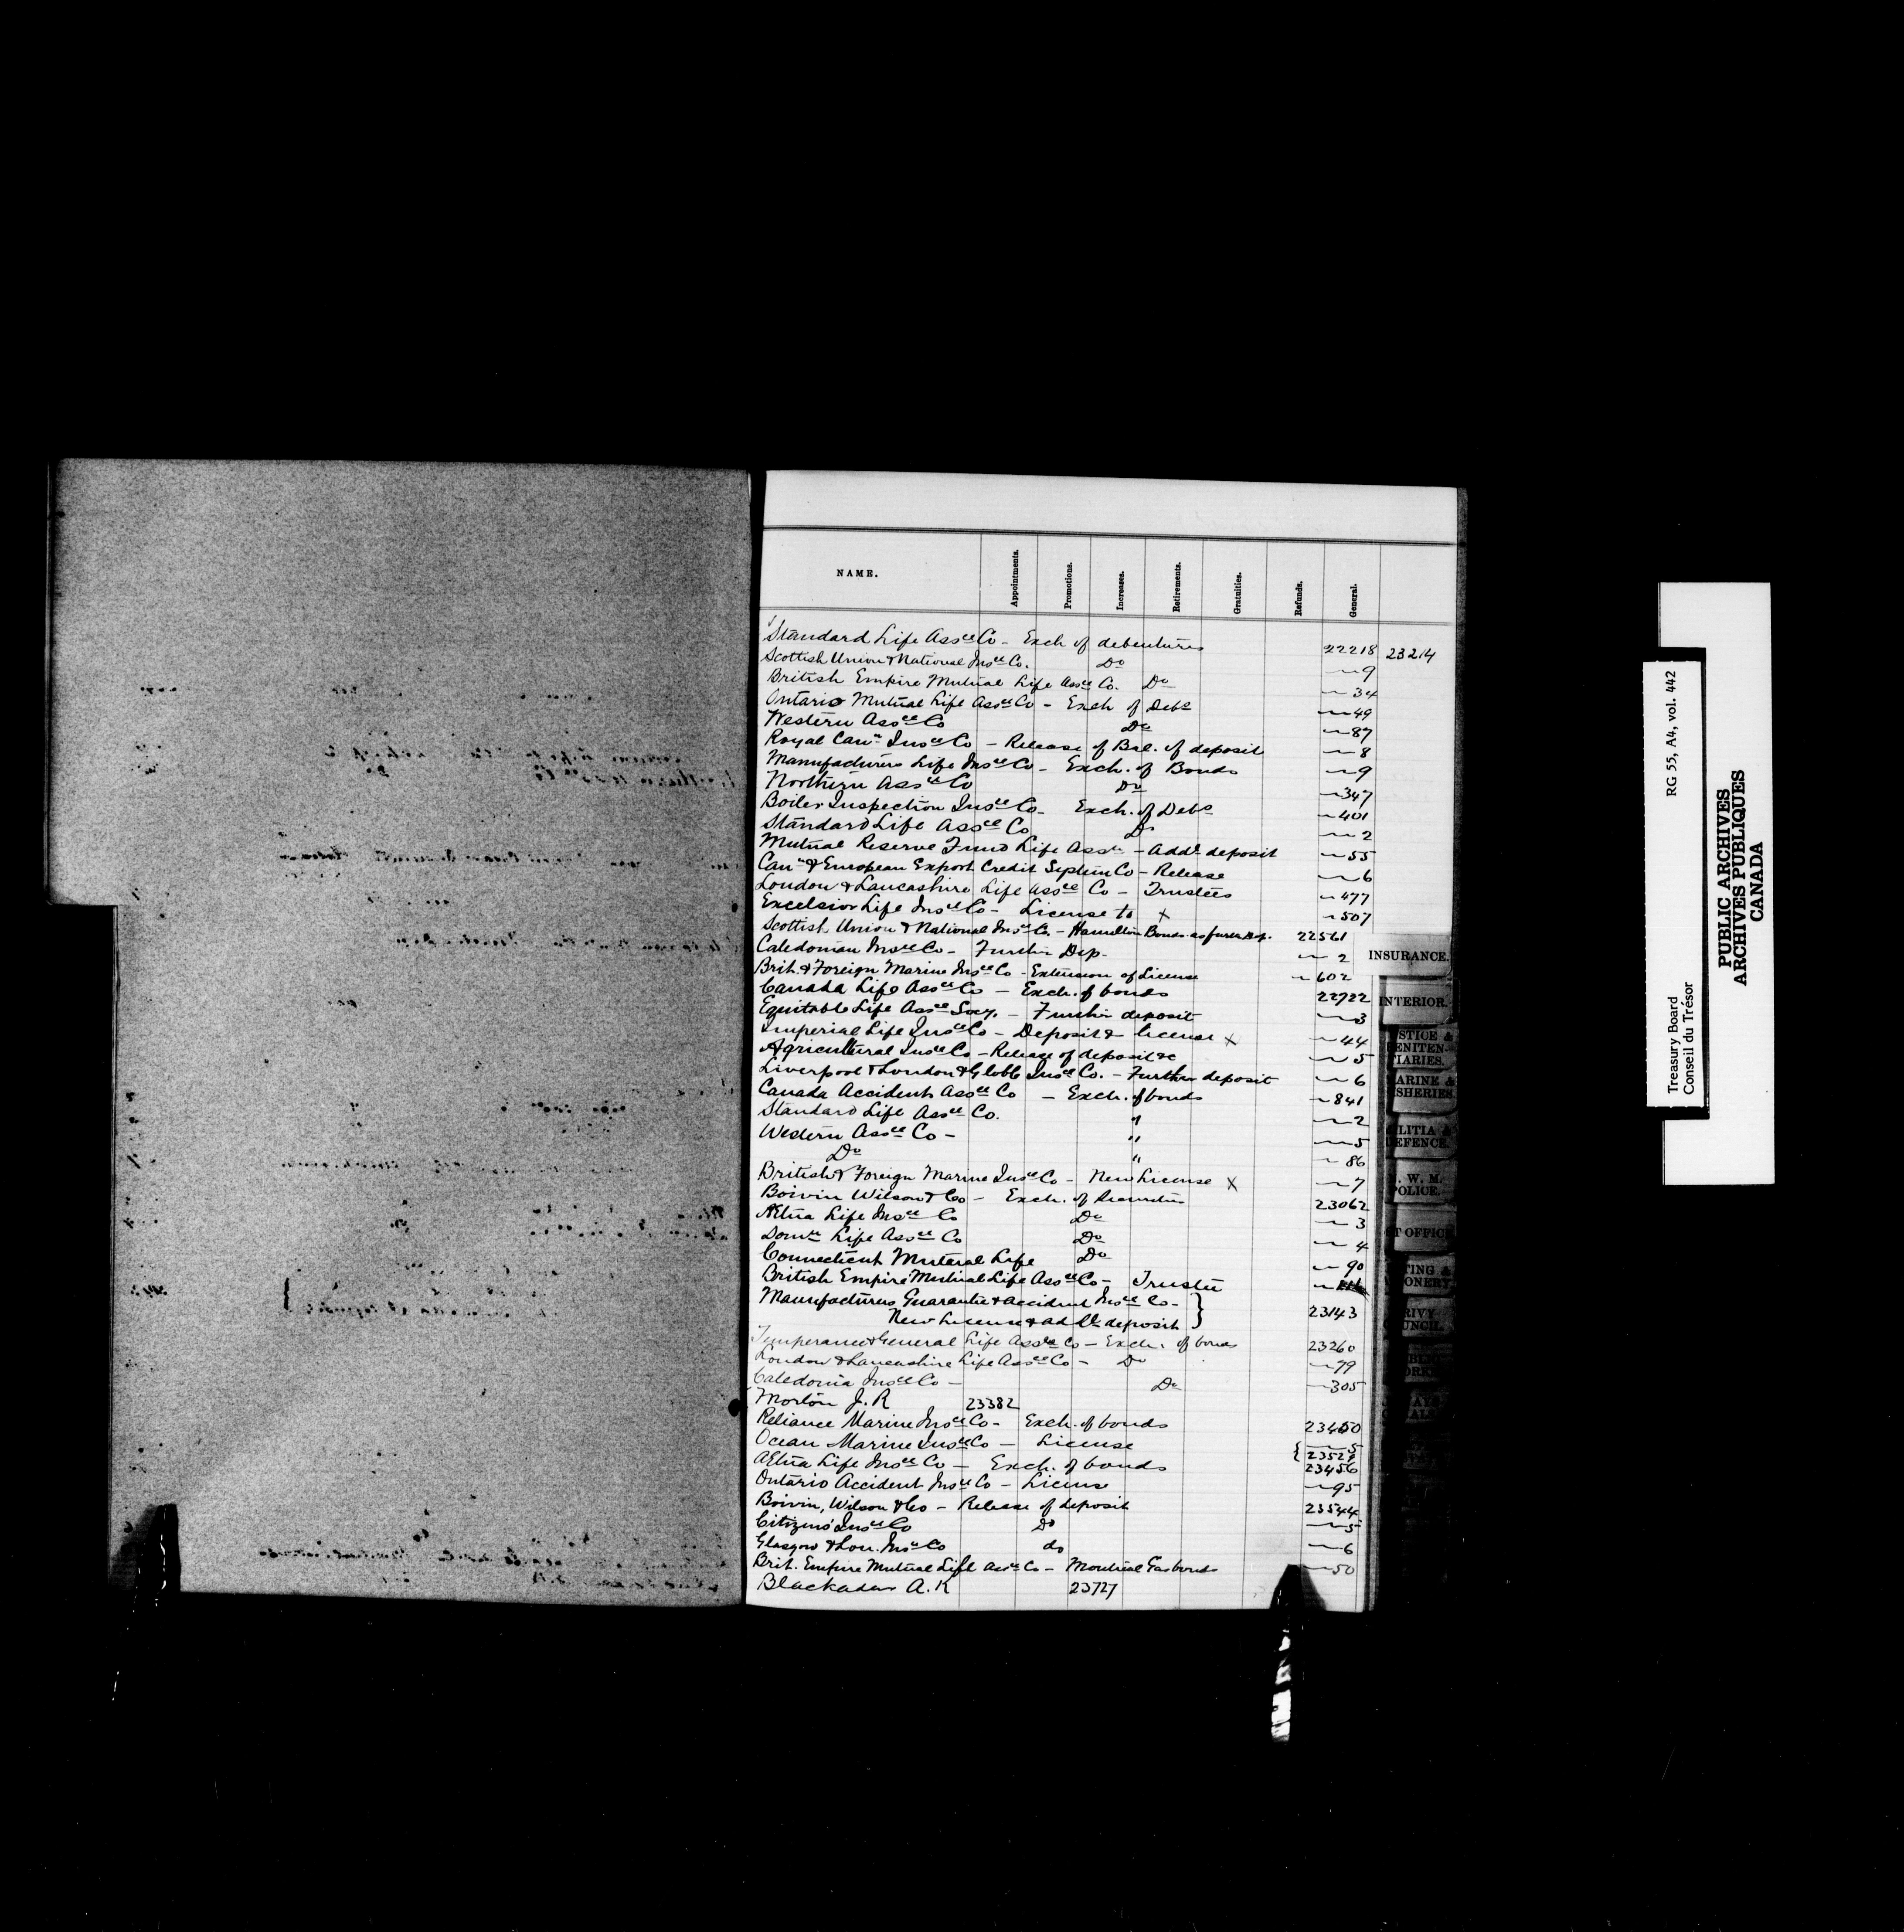 NAME. Appointments. Promotions. Increases. Retirements. Gratuities. Refunds. General.
Standard Life Assce Co - Exch of debentures 22218 23214
Scottish Union & National Insce Co. Do 〃9
British Empire Mutual Life Assce Co. Do 〃34
Ontario Mutual Life Assce Co - Exch of Debs 〃49
Western Assce Co Do 〃87
Royal Cann Insce Co - Release of Bal. of deposit 〃8
Manufacturers Life Insce Co - Exch. of Bonds 〃9
Northern Assce Co Do 〃347
Boiler Inspection Insce Co - Exch. of Debs 〃401
Standard Life Assce Co Do 〃2
Mutual Reserve Fund Life Assn - Addl deposit 〃55
Can & European Export Credit System Co - Release 〃6
London & Lancashire Life Assce Co - Trustees 〃477
Excelsior Life Insce Co - License to X 〃507
Scottish Union & National Insce Co. - Hamilton Bonds as further Dep. 22561
Caledonian Insce Co - Further Dep. 〃2
Brit. & Foreign Marine Insce Co - Extension of License 〃602
Canada Life Assce Co - Exch. of bonds 22722
Equitable Life Assce Socy. - Further deposit 〃3
Imperial Life Insce Co - Deposit & license X 〃44
Agricultural Insce Co - Release of deposit &c 〃5
Liverpool & London & Globe Insce Co. - Further deposit 〃6
Canada Accident Assce Co - Exch. of bonds 〃841
Standard Life Assce Co. " 〃2
Western Assce Co - " 〃5
Do " 〃86
British & Foreign Marine Insce Co - New License X 〃7
Boivin Wilson & Co - Exch. of Securities 23062
Ætna Life Insce Co Do 〃3
Domn Life Assce Co Do 〃4
Connecticut Mutual Life Do 〃90
British Empire Mutual Life Assce Co - Trustee
Manufacturers Guarantee & Accident Insce Co - }
New License & addl deposit } 23143
Temperance & General Life Assce Co - Exch. of bonds 23260
London & Lancashire Life Assce Co - Do 〃99
Caledonia Insce Co - Do 〃305
Morton J. R 23382
Reliance Marine Insce Co - Exch. of bonds 23450
Ocean Marine Insce Co - License { 〃5
23527
Ætna Life Insce Co - Exch. of bonds 23456
Ontario Accident Insce Co - License 〃95
Boivin, Wilson & Co - Release of deposit 23544
Citizens' Insce Co Do 〃5
Glasgow & Lon. Insce Co do 〃6
Brit. Empire Mutual Life Assce Co - Montreal Gas bonds 〃50
Blackadar A. K 23727
INSURANCE.
INTERIOR.
STICE &
ENITEN-
TIARIES.
ARINE &
SHERIES.
LITIA &
EFENCE.
. W. M.
POLICE.
T OFFICE
TING &
ONERY.
RIVY
UNCIL.
Treasury Board RG 55, A4, vol. 442
Conseil du Trésor
PUBLIC ARCHIVES
ARCHIVES PUBLIQUES
CANADA